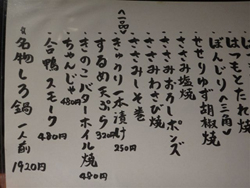 はつもとたれ焼
ぼんじりへ三角〃
せせりゆず胡椒焼
ささみ塩焼
ささみおろしポンズ
ささみわさび焼
ささみしそ巻
へ一品〃
・きゅうり一本漬け 250円
・するめ天ぷら 320円
・きのこバターホイル焼 480円
・ちゃんじゃ 480円
・合鴨スモーク 480円
名物しろ鍋一人前 1920円